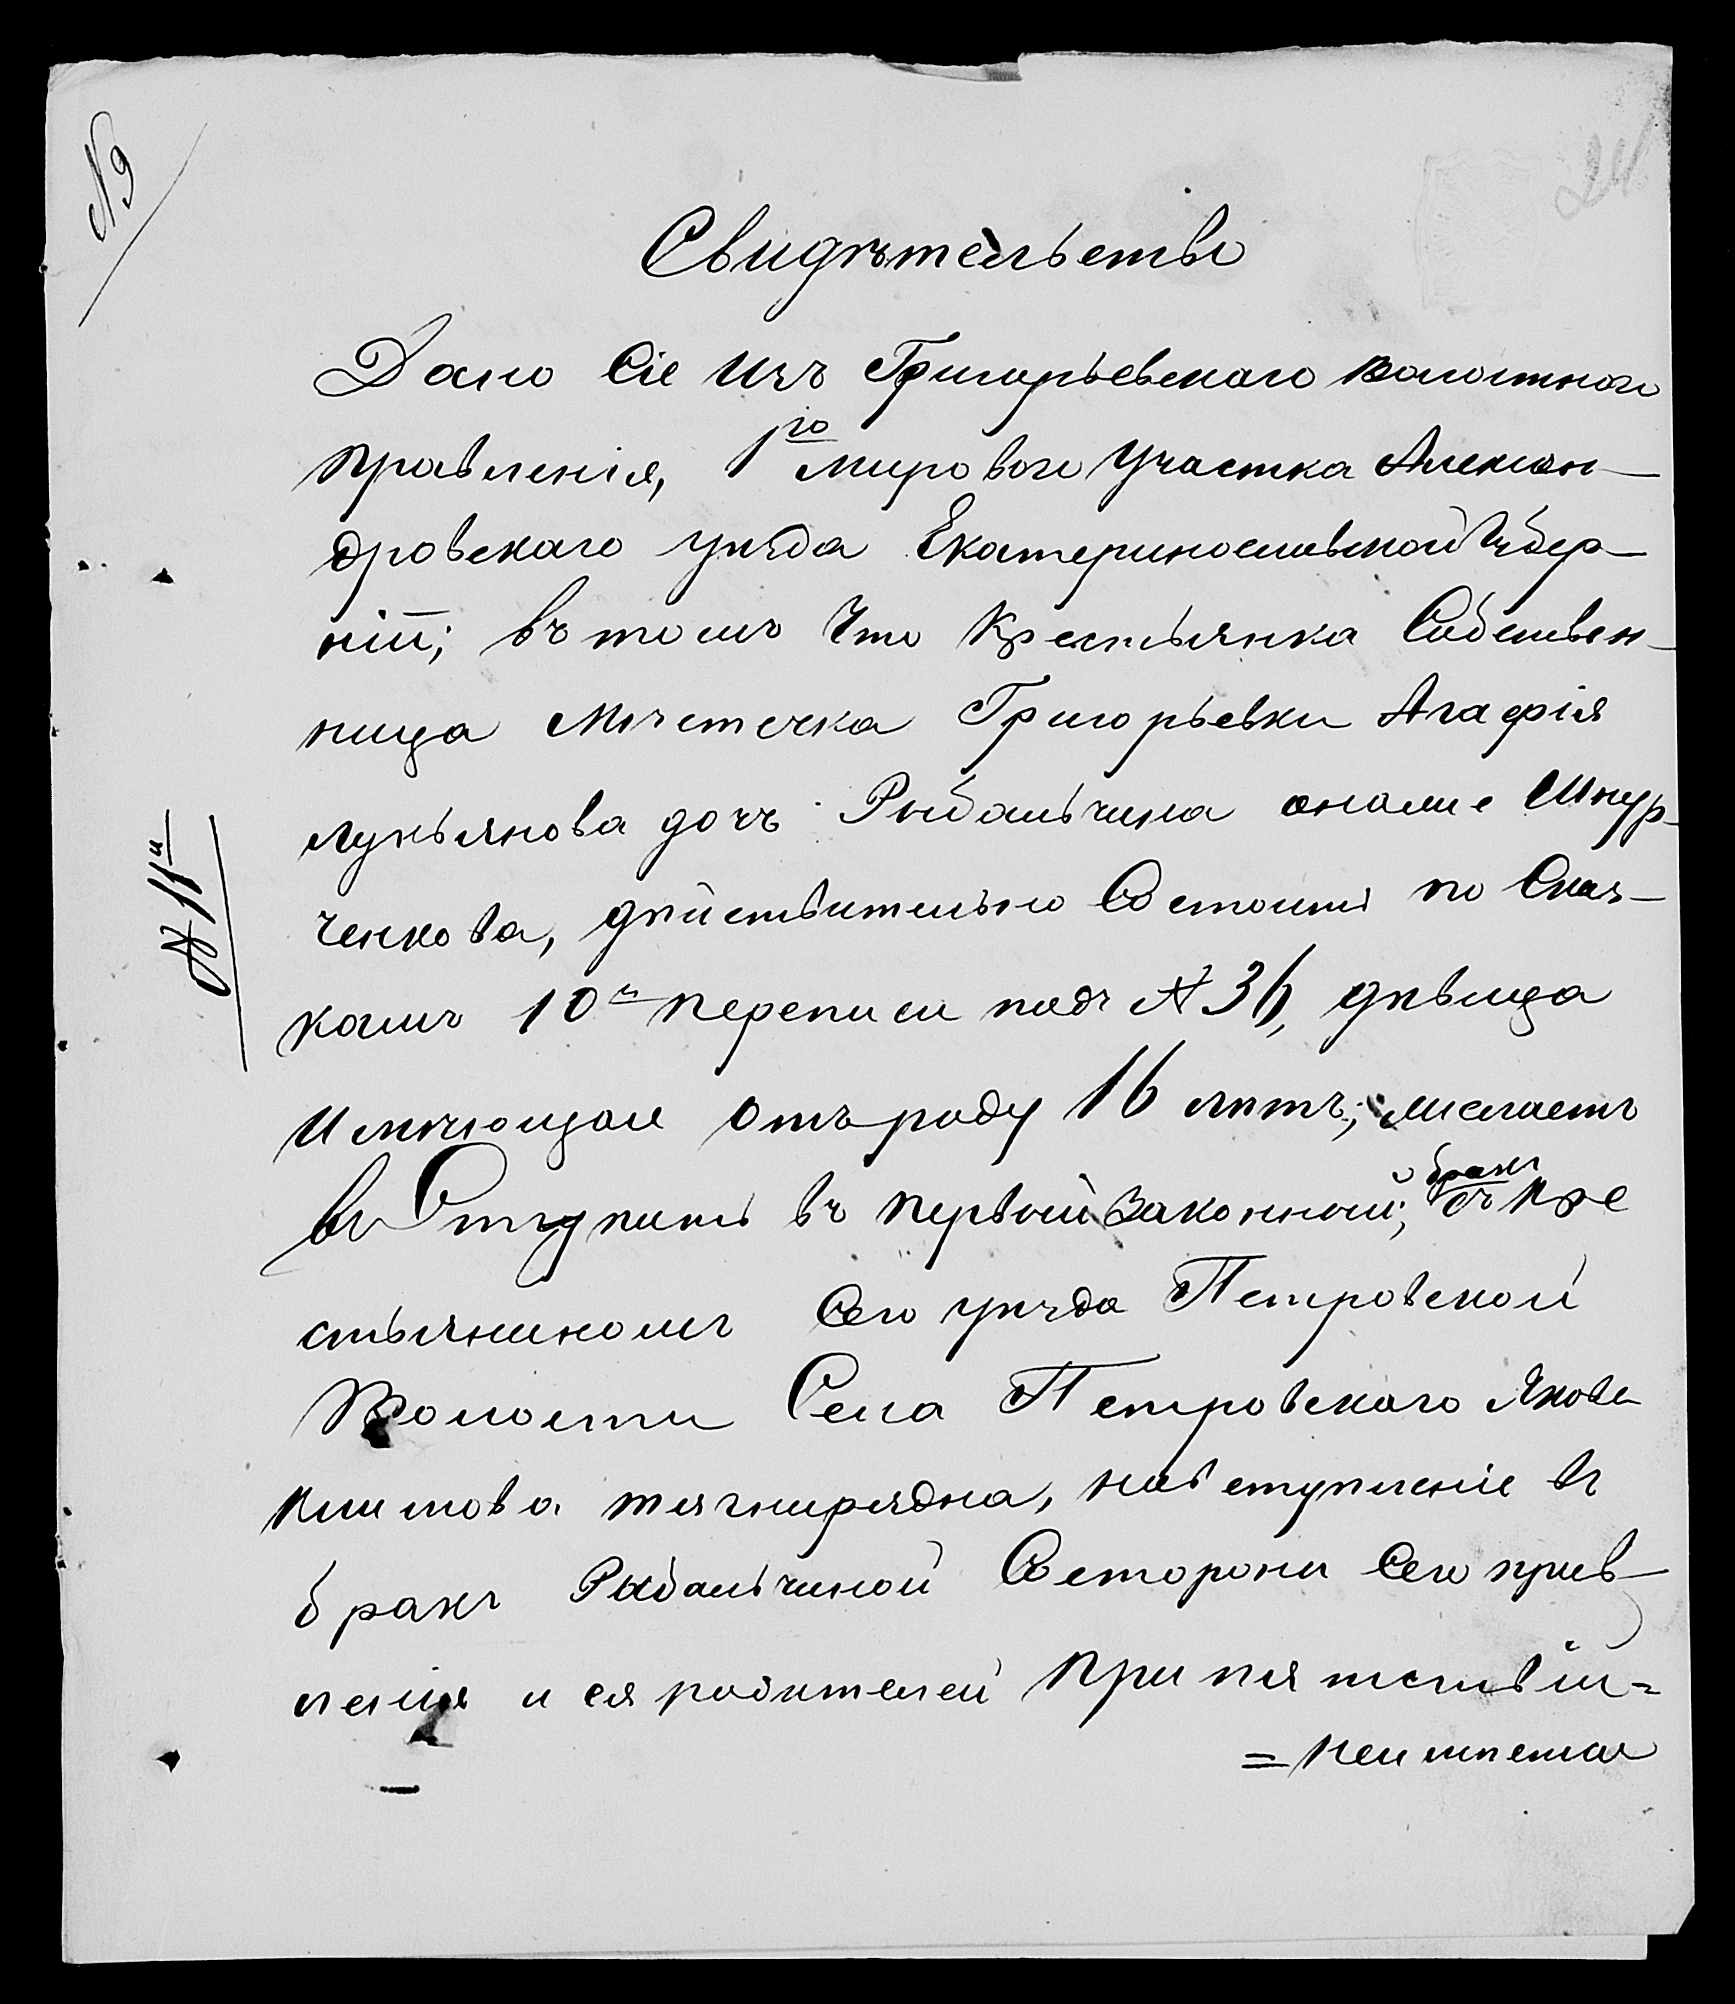 N 9
24
Свидѣтельство
Дано Сіе изъ Григорьевскаго волостнаго
правленія, 1го мироваго участка Алексан-
дровскаго уѣзда Екатеринославской Губер-
ніи; въ томъ Что Крестьянка Собствен-
ница Мѣстечка Григорьевки Агафія
Лукьянова дочь Рыбальчина онаже Шнур-
ченкова, дѣйствительно Состоитъ по Скас-
камъ 10й переписи подъ N 36, дѣвица
Имѣющая отъ роду 16 лѣтъ; желаетъ
Вступить въ первый Законный; бракъ
съ Кре
стьяниномъ Сего уѣзда Петровской
Волости Села Петровскаго Якова
Климова тягнирядна, на вступленіе въ
бракъ Рыбальчиной Состороны Сего прав-
ленія и ея родителей Препятствіи=
=неимѣется
N 11й